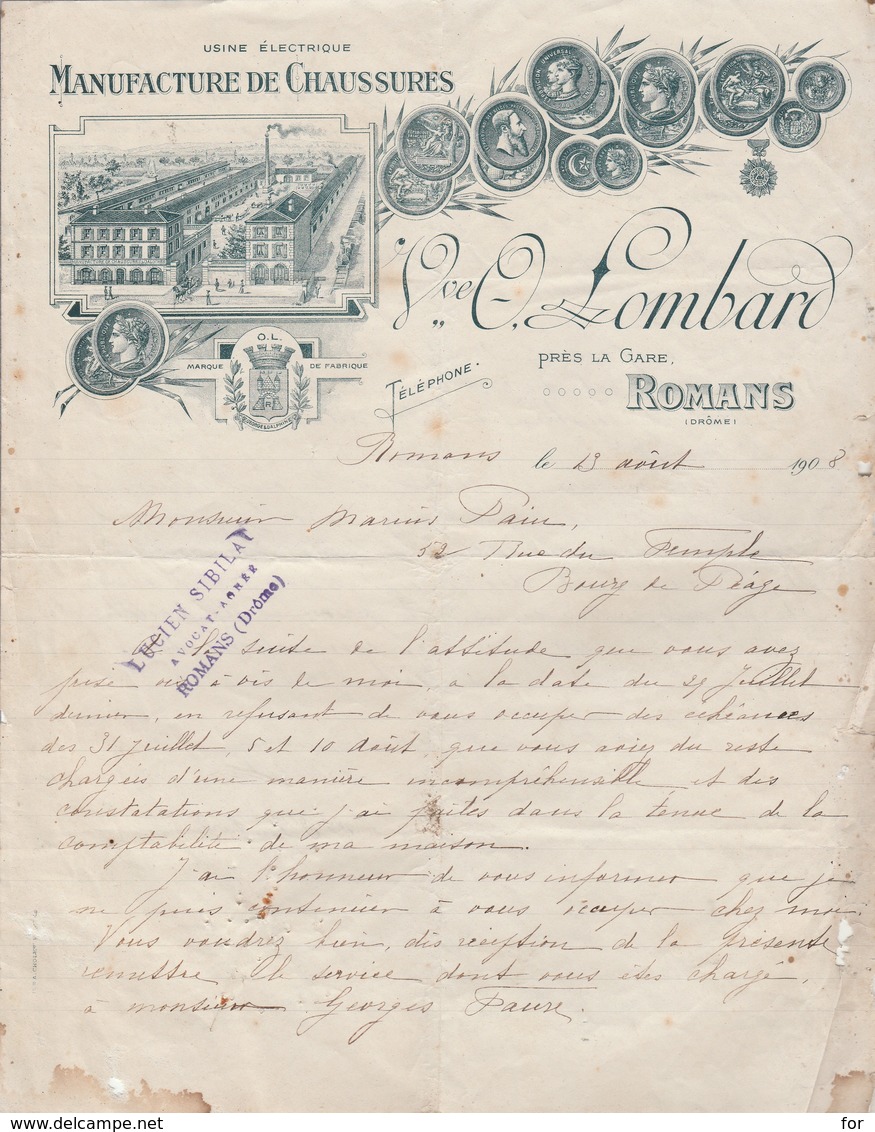 USINE ÉLECTRIQUE
MANUFACTURE DE CHAUSSURES
Vve O. Lombard
PRÈS LA GARE,
TÉLÉPHONE.
ROMANS
(DRÔME)
O.L.
MARQUE DE FABRIQUE
Romans le 13 août 1908
Monsieur Marius Pain,
52 Rue du Temple
Bourg de Péage
LUCIEN SIBILAT
AVOCAT-AGRÉÉ
ROMANS (Drôme)
A la suite de l'attitude que vous avez
prise vis à vis de moi, a la date du 29 Juillet
dernier, en refusant de vous occuper des échéances
des 31 juillet, 5 et 10 Août, que vous aviez du reste
chargées d'une manière incompréhensible et des
constatations que j'ai faites dans la tenue de la
comptabilité de ma maison.
J'ai l'honneur de vous informer que je
ne puis continuer à vous occuper chez moi.
Vous voudrez bien, dès réception de la présente
remettre le service dont vous êtes chargé,
à monsieur Georges Faure.
for